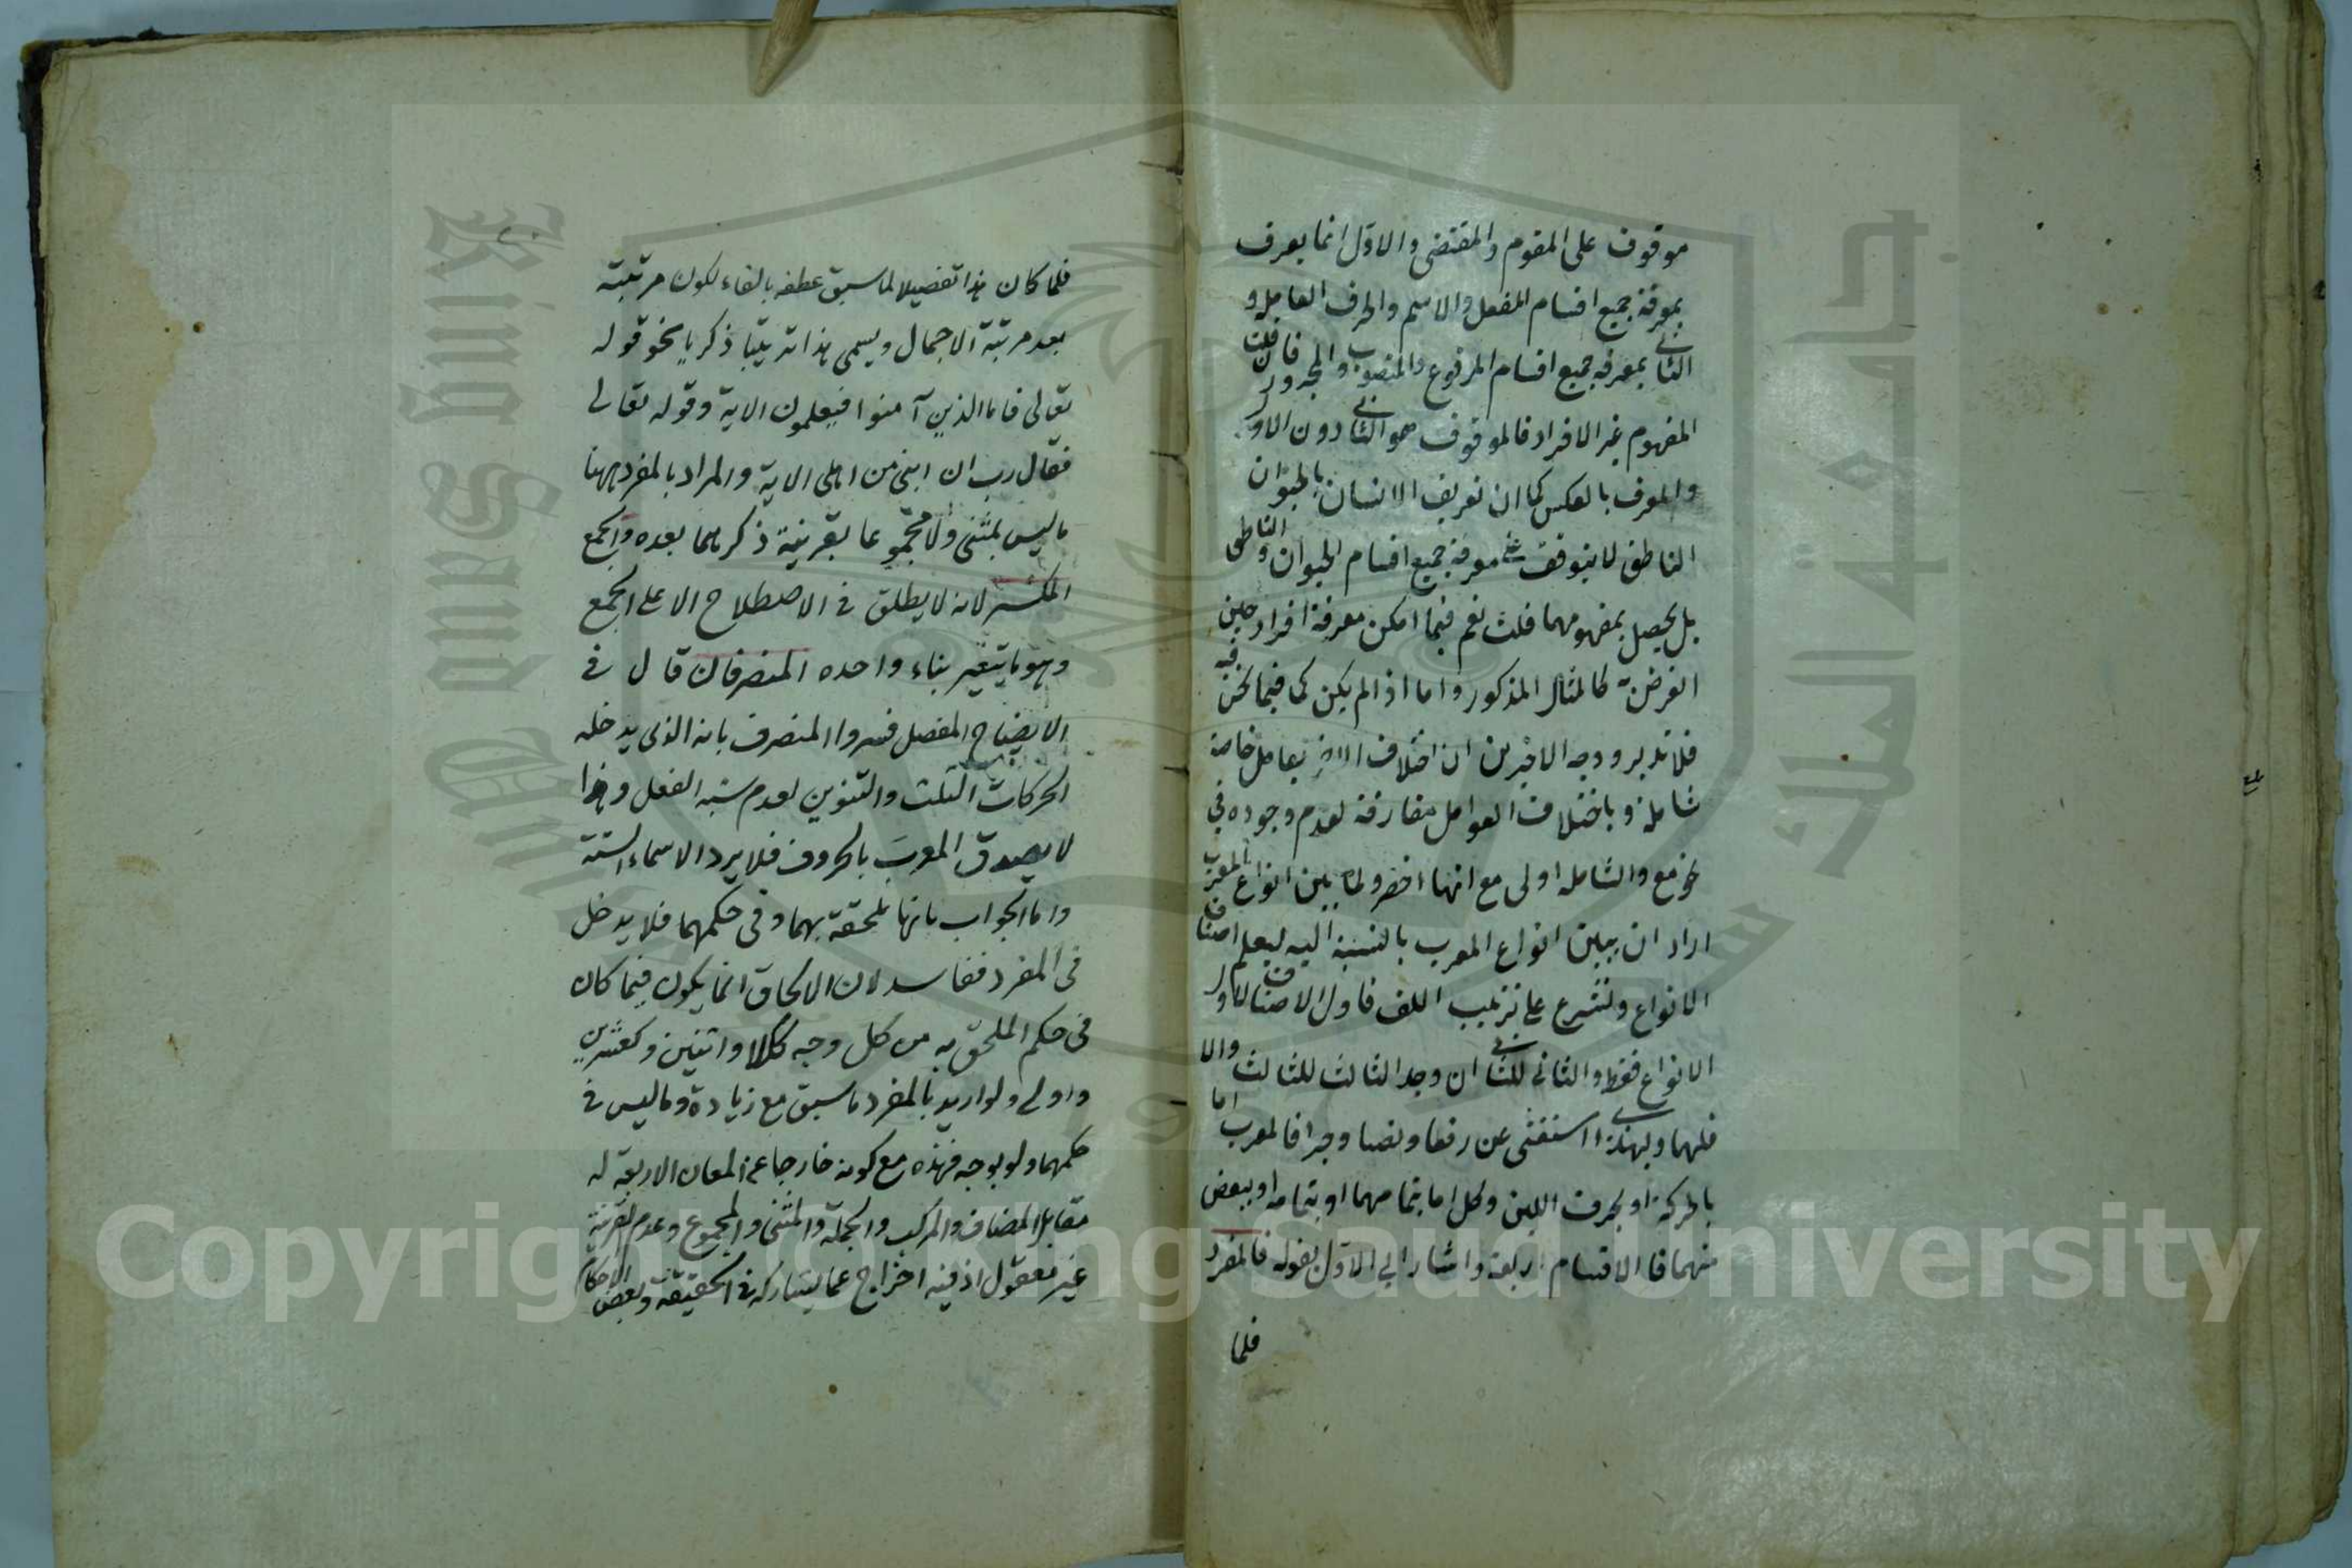 موقوف على المقوم والمقتضى والاول انما يعرف
بمعرفة جميع اقسام الفعل والاسم والحرف العامل و
الثانى بمعرفة جميع اقسام المرفوع والمنصوب والمجرور فان قلت
المفهوم غير الافراد فالموقوف هو الثانى دون الاول
والمعرف بالعكس كما ان تعريف الانسان بالحيوان
الناطق لا يتوقف على معرفة جميع اقسام الحيوان والناطق
بل يحصل بمفهومهما قلت نعم فيما امكن معرفة افراد حين
الغرض كالمثال المذكور واما اذا لم يكن كما فيما نحن فيه
فلا تدبر ووجه الاخيرين ان اختلاف الاخر بعامل خاصة
شاملة وباختلاف العوامل مفارقة لعدم وجوده فى
والشاملة اولى مع انها اخصر ولما بين انواع المعرب
اراد ان يبين انواع المعرب بالنسبة اليه ليعلم اصناف
الانواع ولنشرع على ترتيب اللف فاول الاصناف لاول
الانواع فقط والثانى للثانى ان وجد الثالث للثالث والا
فلهما ولهذا استغنى عن رفعا ونصبا وجرا فالمعرب اما
بالحركة او بحرف اللين وكل اما بتمامهما او بتمامه او ببعض
منهما فالاقسام اربعة واشار الى الاول بقوله فالمفرد
فلما
فلما كان هذا تفصيلا لما سبق عطفه بالفاء لكون مرتبته
بعد مرتبة الاجمال ويسمى هذا ترتيبا ذكريا نحو قوله
تعالى فاما الذين آمنوا فيعلمون الاية وقوله تعالى
فقال رب ان ابنى من اهلى الاية والمراد بالمفرد ههنا
ما ليس بمثنى ولا مجموعا بقرينة ذكرهما بعده والجمع
المكسر لانه لا يطلق فى الاصطلاح الا على الجمع
وهو ما يتغير بناء واحده المنصرفان قال فى
الايضاح المفصل فسروا المنصرف بانه الذى يدخله
الحركات الثلث والتنوين لعدم شبه الفعل وهذا
لا يصدق المعرب بالحروف فلا يرد الاسماء الستة
واما الجواب بانها ملحقة بهما وفى حكمهما فلا يدخل
فى المفرد ففاسد لان الالحاق انما يكون فيما كان
فى حكم الملحق به من كل وجه ككلا واثنين وكعشرين
واولى ولو اريد بالمفرد ما سبق مع زيادة وما ليس فى
حكمهما ولو بوجه فهذه مع كونه خارجا عن المعان الاربعة له
مقابل المضاف والمركب والجملة والمثنى والمجموع وعدم القرينة
غير معقول اذ فيه اخراج عما يشاركه فى الحقيقة وبعض الاحكام
Copyright © King Saud University
جامعة الملك سعود
King Saud University